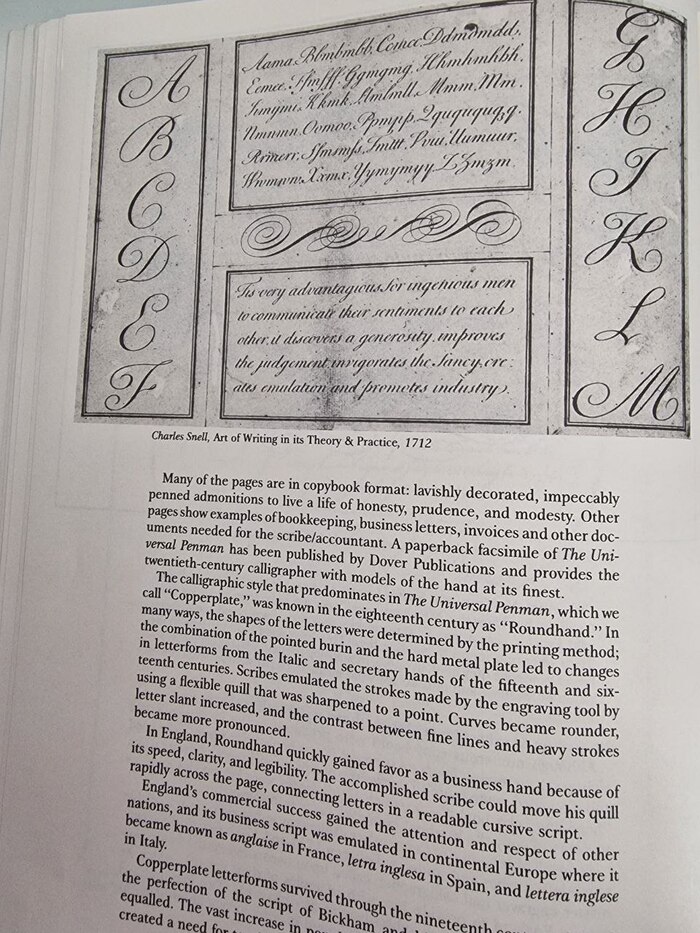 A
B
C
D
E
F
Aama Bbmbmbb, Comcc, Ddmdmdd,
Eemee, Ffmfff, Ggmgmg, Hhmhmhhh.
Kkmk, Mmm, Mm.
Nmnmn, Oomoo, Ppmpp, Qquququq,q.
Rrmerr, Sfsmsfs, Tmttt, Vvui, Uumuur,
Wwmwn, Xxmx, Yymymyy, Z, Zmzm.
Tis very advantagious for ingenious men
to communicate their sentiments to each
other, it discovers a generosity, improves
the judgement invigorates the fancy, cre:
ates emulation and promotes industry.
G
H
I
K
L
M
Charles Snell, Art of Writing in its Theory & Practice, 1712
Many of the pages are in copybook format: lavishly decorated, impeccably
penned admonitions to live a life of honesty, prudence, and modesty. Other
pages show examples of bookkeeping, business letters, invoices and other doc-
uments needed for the scribe/accountant. A paperback facsimile of The Uni-
versal Penman has been published by Dover Publications and provides the
twentieth-century calligrapher with models of the hand at its finest.
The calligraphic style that predominates in The Universal Penman, which we
call “Copperplate,” was known in the eighteenth century as “Roundhand.” In
many ways, the shapes of the letters were determined by the printing method;
the combination of the pointed burin and the hard metal plate led to changes
in letterforms from the Italic and secretary hands of the fifteenth and six-
teenth centuries. Scribes emulated the strokes made by the engraving tool by
using a flexible quill that was sharpened to a point. Curves became rounder,
letter slant increased, and the contrast between fine lines and heavy strokes
became more pronounced.
In England, Roundhand quickly gained favor as a business hand because of
its speed, clarity, and legibility. The accomplished scribe could move his quill
rapidly across the page, connecting letters in a readable cursive script.
England’s commercial success gained the attention and respect of other
nations, and its business script was emulated in continental Europe where it
became known as anglaise in France, letra inglesa in Spain, and lettera inglese
in Italy.
Copperplate letterforms survived through the nineteenth
the perfection of the script of Bickham and
equalled. The vast increase in
created a need for